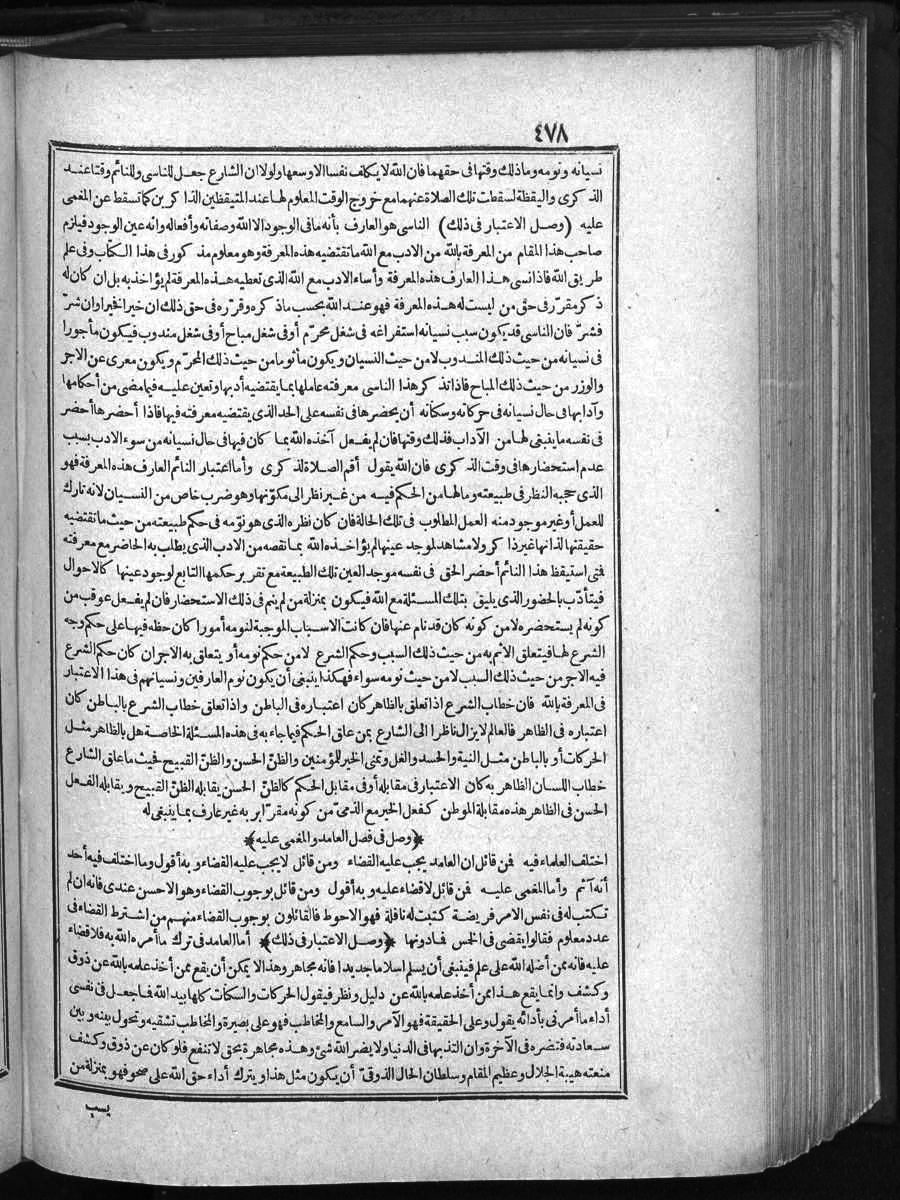 ٤٧٨
نسيانه ونومه وماذلك وقتها فى حقهما فان الله لا يكلف نفسا الا وسعها ولولا ان الشارع جعل للناسى وللنائم وقتا عند
الذكرى واليقظة لسقطت تلك الصلاة عنهما مع خروج الوقت المعلوم لها عند المتيقظين الذاكرين كما تسقط عن المغمى
عليه (وصل الاعتبار فى ذلك) الناسى هو العارف بأنه ما فى الوجود الا الله وصفاته وأفعاله وانه عين الوجود فيلزم
صاحب هذا المقام من المعرفة بالله من الادب مع الله ما تقتضيه هذه المعرفة وهو معلوم مذكور فى هذا الكتاب وفى علم
طريق الله فاذا نسى هذا العارف هذه المعرفة وأساء الادب مع الله الذى تعطيه هذه المعرفة لم يؤاخذ به بل ان كان له
ذكر مقرّر فى حق من ليست له هذه المعرفة فهو عند الله بحسب ماذكره وقرّره فى حق ذلك ان خيرا فخيرا وان شرّ
فشرّ فان الناسى قد يكون سبب نسيانه استفراغه فى شغل محرّم أو فى شغل مباح أو فى شغل مندوب فيكون مأجورا
فى نسيانه من حيث ذلك المندوب لا من حيث النسيان ويكون مأثوما من حيث ذلك المحرّم ويكون معرى عن الاجر
والوزر من حيث ذلك المباح فاذا تذكر هذا الناسى معرفته عاملها بما يقتضيه أدبها وتعين عليه فيما مضى من أحكامها
وآدابها فى حال نسيانه فى حركاته وسكناته أن يحضرها فى نفسه على الحد الذى يقتضيه معرفته فيها فاذا أحضرها أحضر
فى نفسه ما ينبغى لها من الآداب فذلك وقتها فان لم يفعل آخذه الله بما كان فيها فى حال نسيانه من سوء الادب بسبب
عدم استحضارها فى وقت الذكرى فان الله يقول أقم الصلاة لذكرى وأما اعتبار النائم العارف هذه المعرفة فهو
الذى حجبه النظر فى طبيعته وما لها من الحكم فيه من غير نظر الى مكوّنها وهو ضرب خاص من النسيان لانه تارك
للعمل أو غير موجود منه العمل المطلوب فى تلك الحالة فان كان نظره الذى هو نومه فى حكم طبيعته من حيث ما تقتضيه
حقيقتها لذاتها غير ذاكر ولا مشاهد لموجد عينها لم يؤاخذه الله بما نقصه من الادب الذى يطلب به الحاضر مع معرفته
فتى استيقظ هذا النائم أحضر الحق فى نفسه موجد العين تلك الطبيعة مع تقرير حكمها التابع لوجود عينها كالاحوال
فيتأدّب بالحضور الذى يليق بتلك المسئلة مع الله فيكون بمنزلة من لم ينم فى ذلك الاستحضار فان لم يفعل عوقب من
كونه لم يستحضره لا من كونه كان قد نام عنها فان كانت الاسباب الموجبة لنومه أمورا كان حظه فيها على حكم وجه
الشرع لها فيتعلق الاثم به من حيث ذلك السبب وحكم الشرع لا من حكم نومه أو يتعلق به الاجر ان كان حكم الشرع
فيه الاجر من حيث ذلك السبب لا من حيث نومه سواء فهكذا ينبغى أن يكون نوم العارفين ونسيانهم فى هذا الاعتبار
فى المعرفة بالله فان خطاب الشرع اذا تعلق بالظاهر كان اعتباره فى الباطن واذا تعلق خطاب الشرع بالباطن كان
اعتباره فى الظاهر فالعالم لا يزال ناظرا الى الشارع بمن علق الحكم فيما جاء به فى هذه المسئلة الخاصة هل بالظاهر مثل
الحركات أو بالباطن مثل النية والحسد والغل وتمنى الخير للمؤمنين والظنّ الحسن والظنّ القبيح فحيث ما علق الشارع
خطاب اللسان الظاهر به كان الاعتبار فى مقابله أو فى مقابل الحكم كالظنّ الحسن يقابله الظنّ القبيح ويقابله الفعل
الحسن فى الظاهر هذه مقابلة الموطن كفعل الخير مع الذمىّ من كونه مقرّا بربه غير عارف بما ينبغى له
﴿وصل فى فصل العامد والمغمى عليه﴾
اختلف العلماء فيه فمن قائل ان العامد يجب عليه القضاء ومن قائل لا يجب عليه القضاء وبه أقول وما اختلف فيه أحد
أنه آثم وأما المغمى عليه فمن قائل لا قضاء عليه وبه أقول ومن قائل بوجوب القضاء وهو الاحسن عندى فانه ان لم
تكتب له فى نفس الامر فريضة كتبت له نافلة فهو الاحوط فالقائلون بوجوب القضاء منهم من اشترط القضاء فى
عدد معلوم فقالوا يقضى فى الخمس فما دونها ﴿وصل الاعتبار فى ذلك﴾ أما العامد فى ترك ما أمره الله به فلا قضاء
عليه فانه ممن أضله الله على علم فينبغى أن يسلم اسلاما جديدا فانه مجاهر وهذا لا يمكن أن يقع ممن أخذ علمه بالله عن ذوق
وكشف وانما يقع هذا ممن أخذ علمه بالله عن دليل ونظر فيقول الحركات والسكنات كلها بيد الله فما جعل فى نفسى
أداء ما أمرنى بأدائه يقول وعلى الحقيقة فهو الآمر والسامع والمخاطب فهو على بصيرة والمخاطب تشقيه وتحول بينه وبين
سعادته فتضره فى الآخرة وان التذ بها فى الدنيا ولا يضر الله شئ وهذه مجاهرة بحق لا تنفع فلو كان عن ذوق وكشف
منعته هيبة الجلال وعظيم المقام وسلطان الحال الذوقىّ أن يكون مثل هذا ويترك أداء حق الله على صحو فهو بمنزلة من
يسب